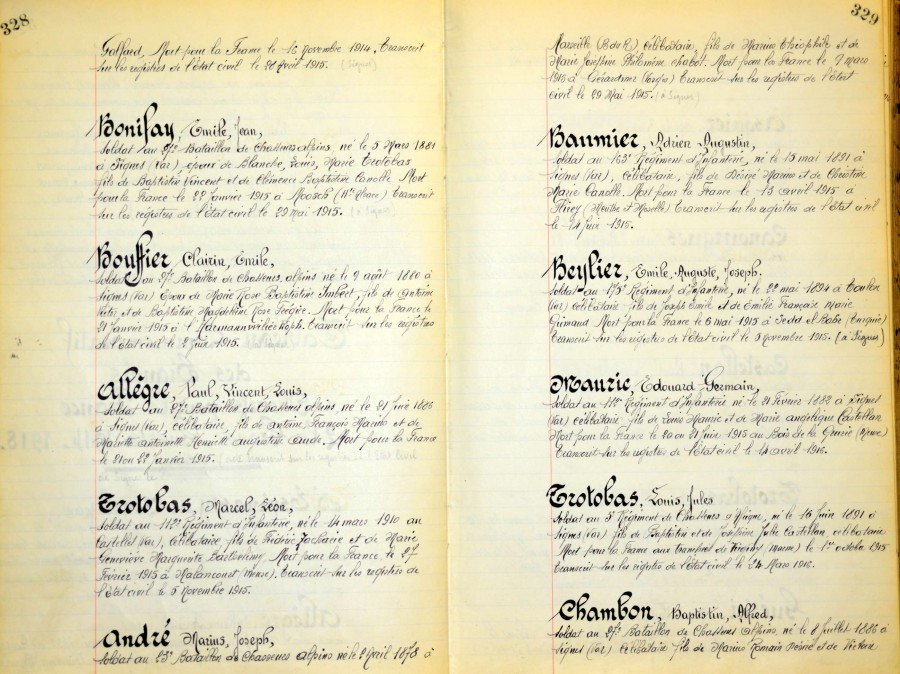 328
Galfard, Mort pour la France le 16 Novembre 1914, Transcrit
sur les registres de l'état civil le 28 Avril 1915. (Signes)
Bonifay, Emile, Jean,
Soldat au 27e Bataillon de Chasseurs alpins né le 5 Mars 1881
à Signes (Var), époux de Blanche, Louis, Marie Trotobas
fils de Baptistin Vincent et de Clémence Baptistine Canolle Mort
pour la France le 22 janvier 1915 à Moosch (Hte Alsace) Transcrit
sur les registres de l'état civil le 29 mai 1915. (à Signes)
Bouffier Clairin, Emile,
Soldat au 27e Bataillon de Chasseurs alpins né le 9 août 1880 à
Signes (Var) Epoux de Marie Rose Baptistine Imbert, fils de Antoine
et de Baptistine Magdeleine Mort pour la France le
21 Janvier 1915 à l'Harmannwillerkoph. Transcrit sur les registres
de l'état civil le 2 Juin 1915.
Allègre, Paul, Vincent, Louis,
Soldat au 27e Bataillon de Chasseurs alpins, né le 21 1886
à Signes (Var), célibataire, fils de Antoine, François et de
antoinette Henriette augustine Aude. Mort pour la France
le 21 ou 22 Janvier 1915.
Trotobas, Marcel, Léon,
Soldat au 112e Régiment d'Infanterie, né le 14 mars 1910 au
Castellet (Var), célibataire, fils de Frédéric Zacharie et de Marie
Geneviève Marguerite Barthélemy Mort pour la France, le 27
Février 1915 à Malancourt (Meuse). Transcrit sur les registres de
l'état civil le 5 Novembre 1915.
André Marius, Joseph,
Soldat au 23e Bataillon de Chasseurs alpins né le 2 Avril 1878 à
329
Marseille (B du R) célibataire, fils de Marius Théophile et de
Marie Joséphine Philomène Chabot. Mort pour la France le 7 mars
1915 à Gérardmer (Vosges) Transcrit sur les registres de l'état
civil le 29 Mai 1915. (à Signes)
Baumier, Adrien Augustin,
soldat au 163e Régiment d'Infanterie, né le 15 mai 1891 à
Signes (Var), célibataire, fils de Désiré Marius et de Christine
Marie Canolle. Mort pour la France le 13 avril 1915 à
Flirey (Meurthe et Moselle) Transcrit sur les registres de l'état civil
le 14 Juin 1915.
Beylier, Emile, Auguste, Joseph.
Soldat au 175e Régiment d'Infanterie, né le 22 mai 1894 à Toulon
(Var) célibataire fils de Joseph Emile et de Emilie Françoise Marie
Guimaud Mort pour la France le 6 mai 1915 à Sedd el Bahr (Turquie)
Transcrit sur les registres de l'état civil le 5 Novembre 1915. (à Signes)
Mauric, Edouard Germain,
Soldat au Régiment d'Infanterie né le 21 Février 1882 à Signes
(Var) célibataire fils de Louis Mauric et de Marie angélique Castellan
Mort pour la France le 20 ou 21 Juin 1915 au Bois de la Grurie (Marne)
Transcrit sur les registres de l'état civil le 14 avril 1916.
Trotobas, Louis, Jules
Soldat au 5e Régiment de Chasseurs d'Afrique, né le 16 juin 1891 à
Signes (Var) fils de Baptistin et de Joséphine Julie Castellan, célibataire
Mort pour la France aux tranchées de (Marne) le 1er octobre 1915
Transcrit sur les registres de l'état civil le 24 Mars 1916.
Chambon, Baptistin, Alfred,
soldat au 27e Bataillon de Chasseurs Alpins, né le 8 juillet 1886 à
Signes (Var) célibataire fils de Marius Romain Désiré et de Victoire